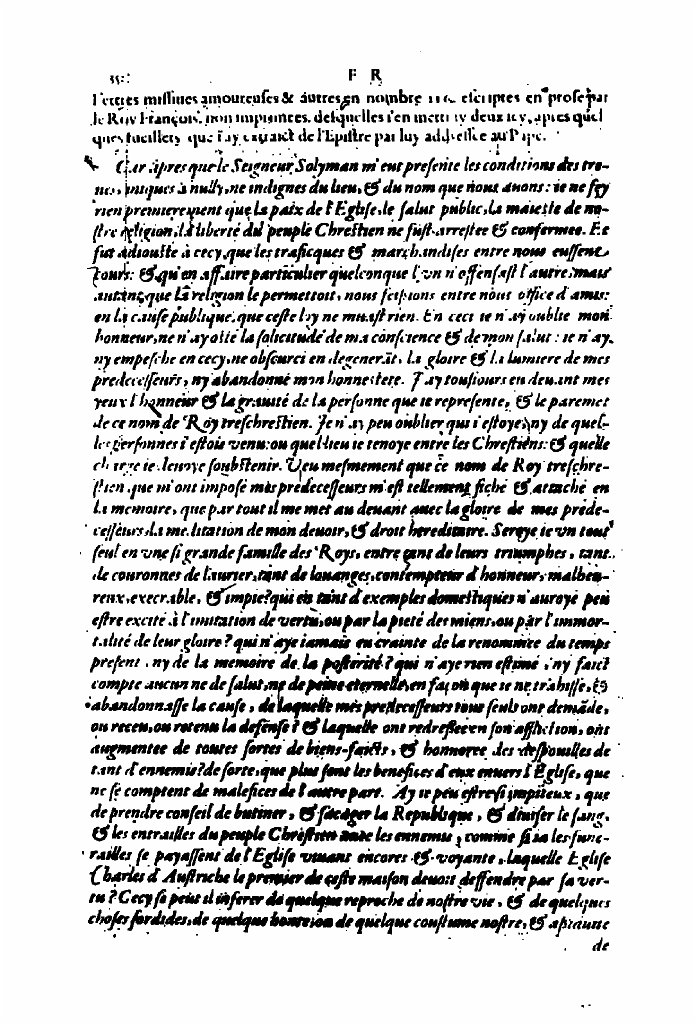 F R
Lettres missiues amoureuses & autres en nombre escriptes en prose par
le Roy François, non imprimees, desquelles i'en mettray deux icy, apres quel
ques fueillets que i'ay extraict de l'Epistre par luy addressee au Pape.
Car apres que le Seigneur Solyman m'eut presenté les conditions des tre-
ues, iniques à nully, ne indignes du lieu, & du nom que nous auons: ie ne fey
rien premierement que la paix de l'Eglise, le salut public, la maiesté de no-
stre religion, la liberté du peuple Chrestien ne fust arrestee & confermee. Et
fut adiousté à cecy, que les traficques & marchandises entre nous eussent
cours: & qu'en affaire particulier quelconque l'vn n'offensast l'autre, mais
autant que la religion le permettoit, nous feissions entre nous office d'amis:
en la cause publique, que ceste loy ne nuast rien. En ceci ie n'ay oublié mon
honneur, ne n'ay osté la solicitude de ma conscience & de mon salut: ie n'ay,
ny empesché en cecy, ne obscurci en degenerāt, la gloire & la lumiere de mes
predecesseurs, ny abandonné mon honnesteté. I'ay tousiours eu deuant mes
yeux l'honneur & la grauité de la personne que ie represente, & le paremēt
de ce nom de Roy treschrestien. Ie n'ay peu oublier qui i'estoye, ny de quel-
les personnes i'estois venu: ou quel lieu ie tenoye entre les Chrestiēns: & quelle
charge ie deuoye soubstenir. Veu mesmement que ce nom de Roy treschre-
stien que m'ont imposé mes predecesseurs m'est tellement fiché & attaché en
la memoire, que par tout il me met au deuant auec la gloire de mes prede-
cesseurs, la meditation de mon deuoir, & droit hereditaire. Seroye ie vn tout
seul en vne si grande famille des Roys, entre tant de leurs triumphes, tant
de couronnes de laurier, tant de louanges, contempteur d'honneur, malheu-
reux, execrable, & impie? qui en taint d'exemples domestiques n'auroyé peu
estre excité à l'imitation de vertu, ou par la pieté des miens, ou par l'immor-
talité de leur gloire? qui n'aye iamais eu crainte de la renommee du temps
present, ny de la memoire de la posterité? qui n'aye rien estimé, n'y faict
compte aucun ne de salut, ne de peine eternelle, en façon que ie ne trahisse, &
abandonnasse la cause, de laquelle mes predecesseurs tous seuls ont demādé,
ou receu, ou retenu la defense? & laquelle ont redressee en son affliction, ont
augmentee de toutes sortes de biens-faicts, & honnoree des despouilles de
tant d'ennemis? de sorte, que plus sont les benefices d'eux enuers l'Eglise, que
ne se comptent de malefices de l'autre part. Ay ie peu estre si impiteux, que
de prendre conseil de butiner, & saccager la Republique, & diuiser le sang,
& les entrailles du peuple Chrestien auec les ennemis, comme si ia les fune-
railles se payassent de l'Eglise viuant encores & voyante, laquelle Eglise
Charles d'Austriche le premier de ceste maison deuoit deffendre par sa ver-
tu? Cecy se peut il inferer de quelque reproche de nostre vie, & de quelques
choses sordides, de quelque honte, ou de quelque coustume nostre, &
de